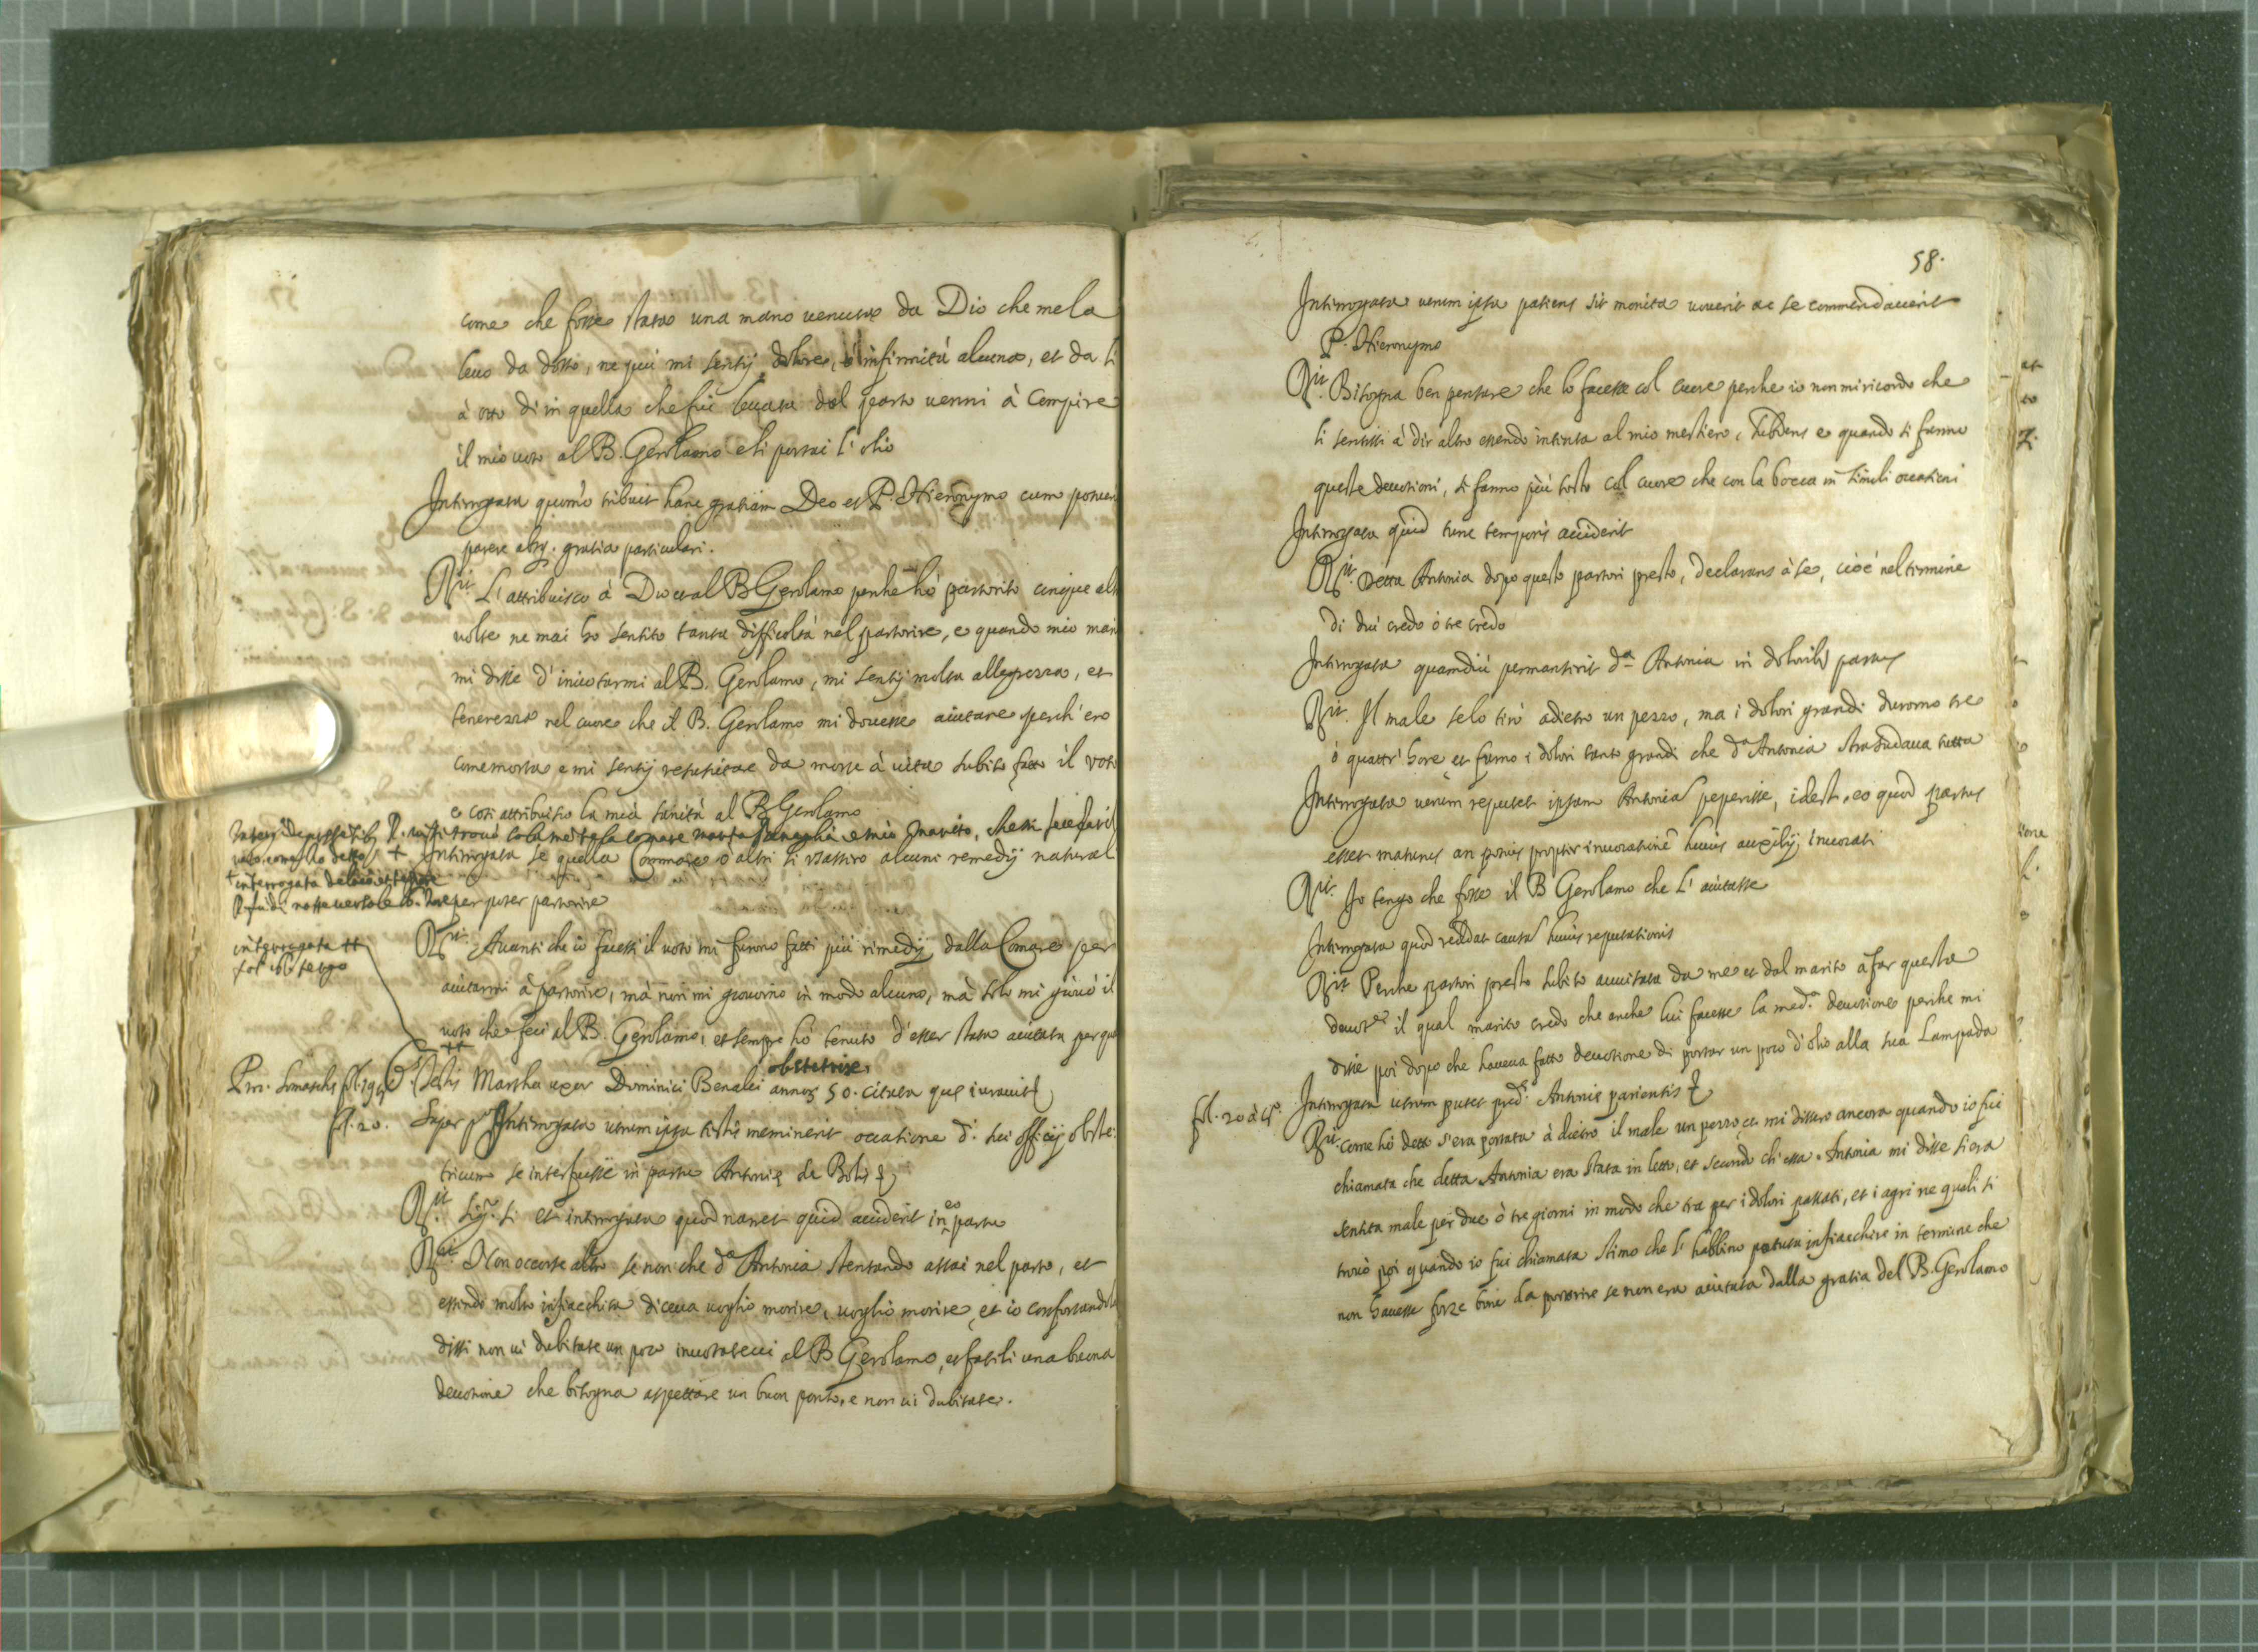 come che fosse stata una mano venuta da Dio che me la
levò da dosso, ne più mi sentij dolore, ò infirmità alcuna, et da li
à otto di in quella che fui levata dal parto venni à Compire
il mio voto al B. Gerolamo e li portai l'olio
Interrogata quomo tribuit hanc gratiam Deo et P. Hieronymo cum potueri
parere absq. gratia particulari.
Rit. L'attribuisco à Dio et al B Gerolamo perche hò partorito cinque alt
volte ne mai ho sentito tanta difficoltà nel partorire, e quando mio mari
mi disse d'invotarmi al B. Gerolamo, mi sentij molta allegrezza, et
tenerezza nel cuore che il B. Gerolamo mi dovesse aiutare perch'ero
come morta e mi sentij resusitare da morte à vita subito fatto il voto
e così attribuisco la mia sanità al B Gerolamo
R. vi si trovò la Comare Marta e mio Marito,
voto come ho detto
+ Interrogata se quella Commare ò altri li usassero alcuni remedij natural
+ interrogata
per poter partorire
interrogata ++
Rit. Avanti che io facessi il voto mi furono fatti più rimedij dalla Comare per
aiutarmi à partorire, mà non mi giovorno in modo alcuno, mà solo mi giovò il
voto che feci al B. Gerolamo, et sempre hò tenuto d'esser stata aiutata per que
++
obstetrice,
Testis Martha uxor Dominici Benalei annor. 50. citata que iuravit
fol. 20. Super Interrogata utrum ipsa testis meminerit occasione d. sui officij obste
tricum se interfuisse in partu Antonie de Bolis
Rit. sig.r si et interrogata quod narret quid acciderit in eo partu
Rit. Non occorse altro se non che d.a Antonia stentando assai nel parto, et
essendo molto infiacchita diceva voglio morire, voglio morire, et io confortandola
dissi non vi dubitate un poco invotatevi al B Gerolamo, et fatili una buona
devotione che bisogna aspettare un buon ponto, e non vi dubitate.
58.
Interrogata utrum ipsa patiens sit monita voverit ac se commendaverit
P. Hieronymo
Rit. Bisogna ben pensare che lo facesse col cuore perche io non mi ricordo che
li sentissi à dir altro essendo intenta al mio mestiero, subdens e quando si fanno
queste devotioni, si fanno più tosto col cuore che con la bocca in simili occasioni
Interrogata quid tunc temporis acciderit
Rit. Detta Antonia dopo questo partorì presto, declarans à se, cioè nel termine
di dui credo ò tre credo
Interrogata quamdiù permanserit d.a Antonia in doloribus partus
Rit. Il male se lo tirò adietro un pezzo, ma i dolori grandi durorno tre
ò quattr'hore et furno i dolori tanto grandi che d.a Antonia strasudava tutta
Interrogata utrum reputet ipsam Antonia peperisse, idest, eo quod partus
esset maturus an potius propter invocatione huius auxilij invocati
Rit. Io tengo che fosse il B Gerolamo che l'aiutasse
Interrogata quod reddat causa huius reputationis
Rit. Perche partorì presto subito avvisata da me et dal marito à far questa
devot.e il qual marito credo che anche lui facesse la med.a devotione perche mi
disse poi dopo che haveva fatto devotione di portar un poco d'olio alla sua Lampada
fol. 20 à t.o Interrogata utrum putet pred.e Antonie parientis
Rit. come hò detto s'era portata à dietro il male un pezzo, et mi dissero ancora quando io fui
chiamata che detta Antonia era stata in letto, et secondo ch'essa Antonia mi disse si era
sentita male per due ò tre giorni in modo che tra per i dolori passati, et i agri ne quali si
trovò poi quando io fui chiamata stimo che l'habbino potuta infiacchire in termine che
non havesse forze bone da partorire se non era aiutata dalla gratia del B. Gerolamo